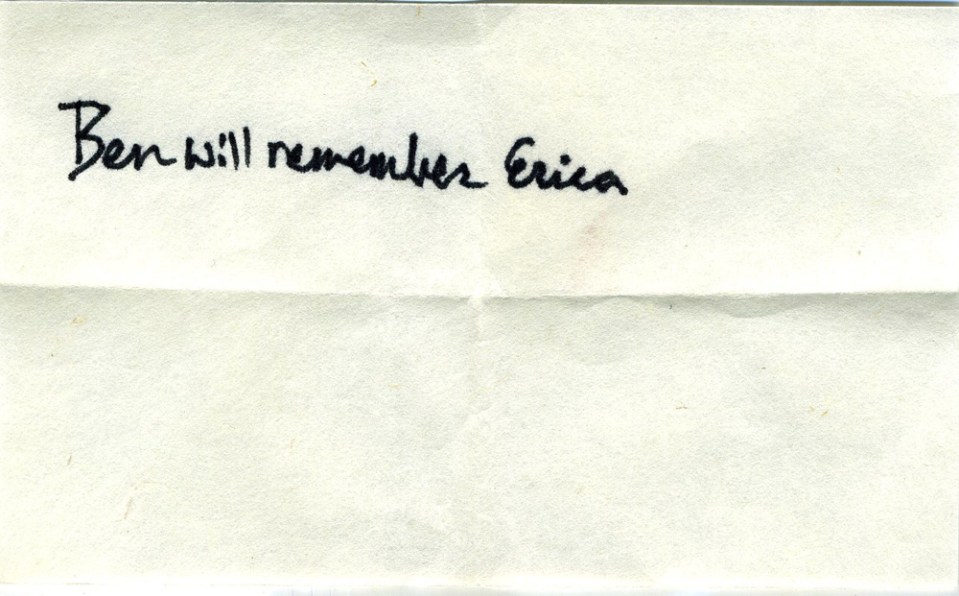 Ben will remember Erica